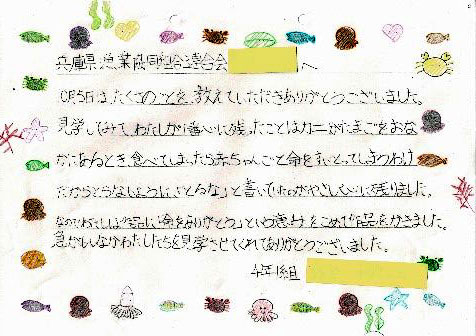 兵庫県漁業協同組合連合会 へ
10月5日はたくさんのことを教えていただきありがとうございました。
見学してみてわたしが心に残ったことはカニがたまごをおな
かにあるとき食べてしまったら赤ちゃんごと命をすいとってしまうわけ
だからとらないように「とるな」と書いていたのが心に残りました。
なのでわたしは作品に「命をありがとう」という意みをこめて作品をかきました。
急がしいなかわたしたちを見学させてくれてありがとうございました。
4年1組